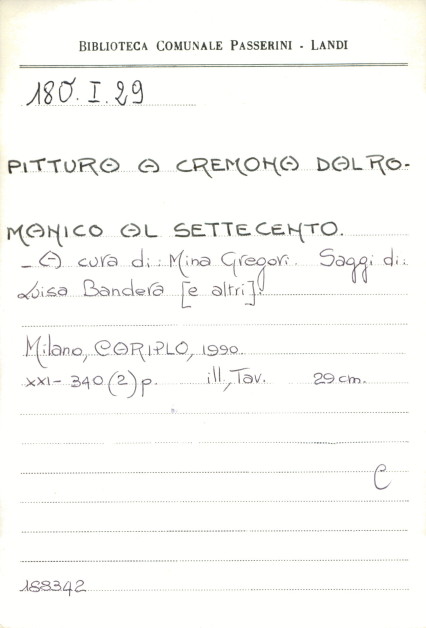 BIBLIOTECA COMUNALE PASSERINI - LANDI
180.I.29
PITTURA A CREMONA DAL RO-
MANICO AL SETTECENTO.
- A cura di: Mina Gregori. Saggi di:
Luisa Bandera [e altri].
Milano, CARIPLO, 1990.
XXI- 340 (2) p. ill, Tav. 29 cm.
C
188342